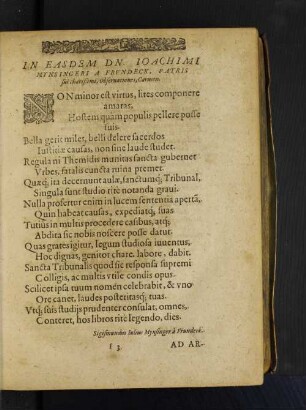 IN EASDEM DN. IOACHIMI
MYNSINGERI A FRVNDECK, PATRIS
sui charissimi, Obseruationes, Carmen.
NON minor est virtus, lites componere
amaras,
Hostem quàm populis pellere posse
suis.
Bella gerit miles, belli delere sacerdos
Iustitiæ causas, non sine laude studet.
Regula ni Themidis munitas sancta gubernet
Vrbes, fatalis cuncta ruina premet.
Quæq́; ita decernunt aulæ, sanctumq́; Tribunal,
Singula sunt studio ritè notanda graui.
Nulla profertur enim in lucem sententia aperta,
Quin habeat causas, expeditaq́; suas
Tutius in multis procedere casibus, atq́;
Abdita sic nobis noscere posse datur.
Quas grates igitur, legum studiosa iuuentus,
Hoc dignas, genitor chare, labore, dabit.
Sancta Tribunalis quod sic responsa supremi
Colligis, ac multis vtile condis opus.
Scilicet ipsa tuum nomen celebrabit, & vno
Ore canet, laudes posteritasq́; tuas.
Vtq́; suis studijs prudenter consulat, omnes
Conteret, hos libros ritè legendo, dies.
Sigismundus Iulius Mynsinger à Frundeck.
f 3 AD AR-